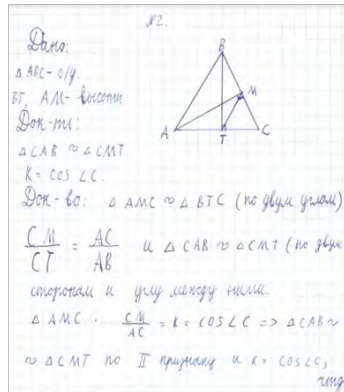 №2.
Дано:
△ABC - о/у.
BT, AM - высоты
Док-ть:
△CAB ∾ △CMT
K = cos ∠C.
B
M
A
T
C
Док-во: △AMC ∾ △BTC (по двум углам)
CM/CT = AC/AB и △CAB ∾ △CMT (по двум
сторонам и углу между ними.
△AMC. CM/AC = K = cos∠C => △CAB ∾
∾ △CMT по II признаку и K = cos∠C,
чтд